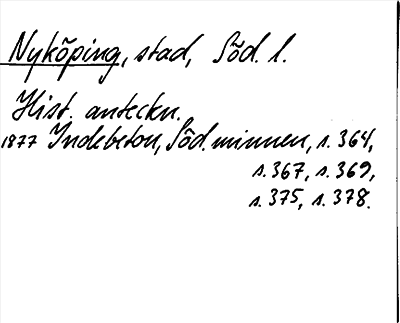 Nyköping, stad, Söd. l.
Hist. anteckn.
1877 Indebetou, Söd. minnen, s. 364,
s. 367, s. 369,
s. 375, s. 378.